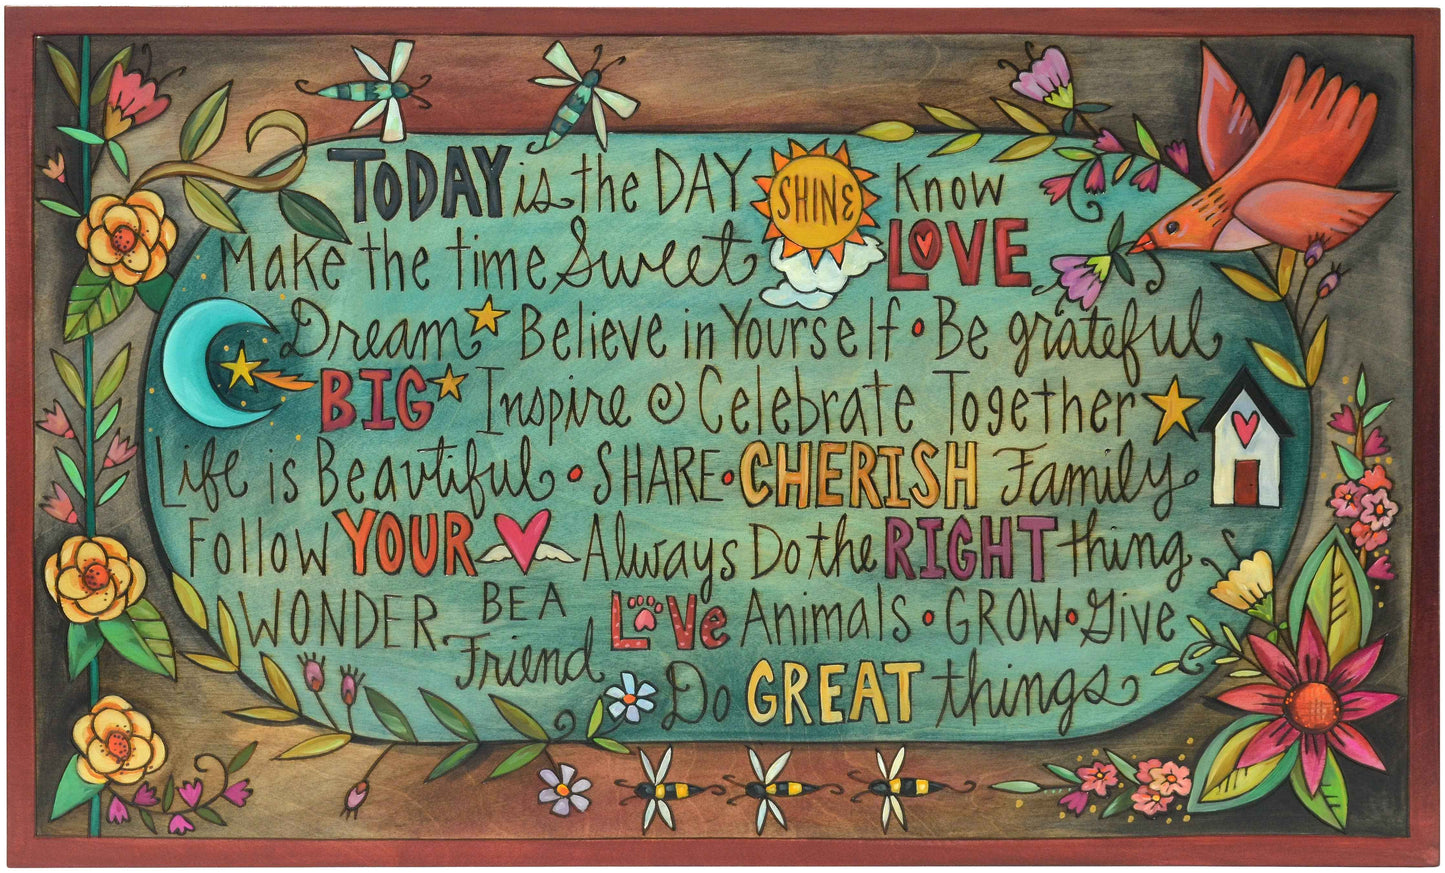 TODAY is the DAY SHINE Know
Make the time Sweet LOVE
Dream Believe in Yourself • Be grateful
BIG Inspire Celebrate Together
Life is Beautiful • SHARE • CHERISH Family
Follow YOUR Always Do the RIGHT thing
WONDER BE A LOVE Animals • GROW • Give
Friend Do GREAT things